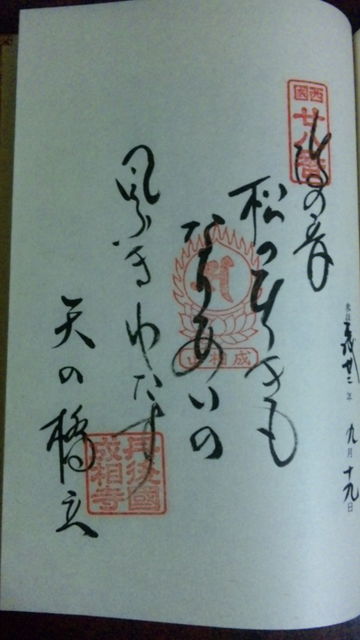 西國
廿八番
波の音
松のひびきも
なりあいの
風ふきわたす
天の橋立
成相山
丹後國
成相寺
年 九月十九日